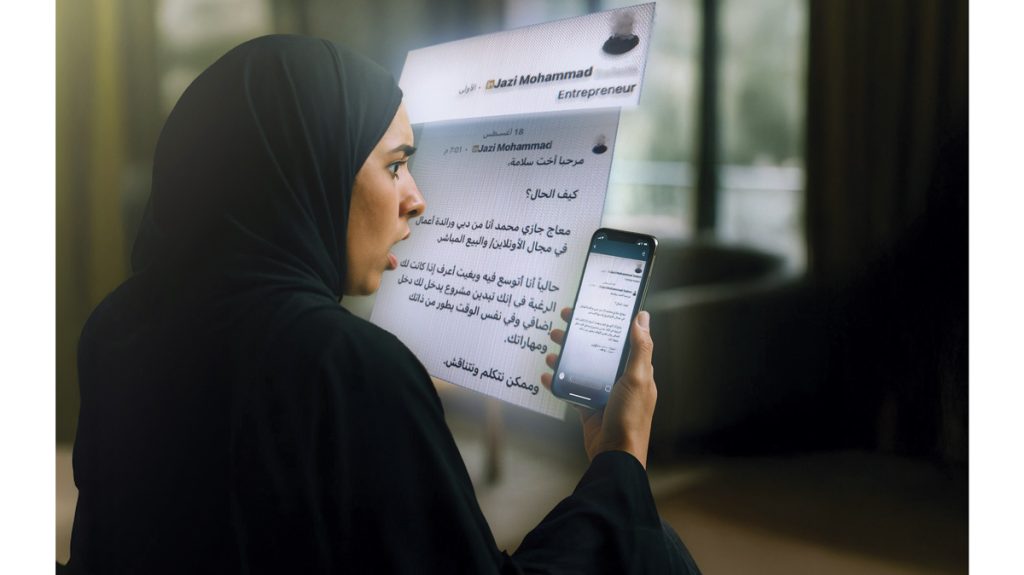 Jazi Mohammad · الأولى
Entrepreneur
18 أغسطس
Jazi Mohammad · 7:01 م
مرحبا أخت سلامة،
كيف الحال؟
معاج جازي محمد أنا من دبي ورائدة أعمال
في مجال الأونلاين/ والبيع المباشر
حالياً أنا أتوسع فيه وبغيت أعرف إذا كانت لك
الرغبة في إنك تبدين مشروع يدخل لك دخل
إضافي وفي نفس الوقت يطور من ذاتك
ومهاراتك.
وممكن نتكلم ونتناقش.